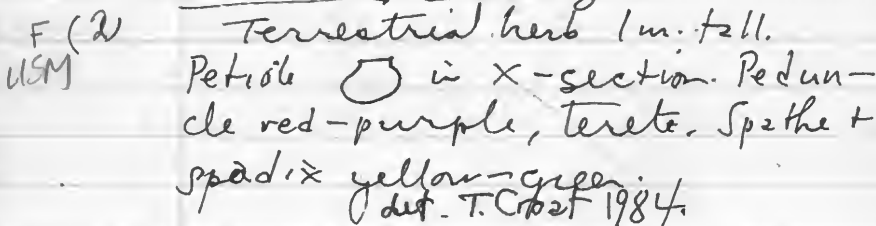 F (2) Terrestrial herb 1 m. tall.
USM Petiole in X-section. Pedun-
cle red-purple, terete. Spathe +
spadix yellow-green.
det. T. Croat 1984.